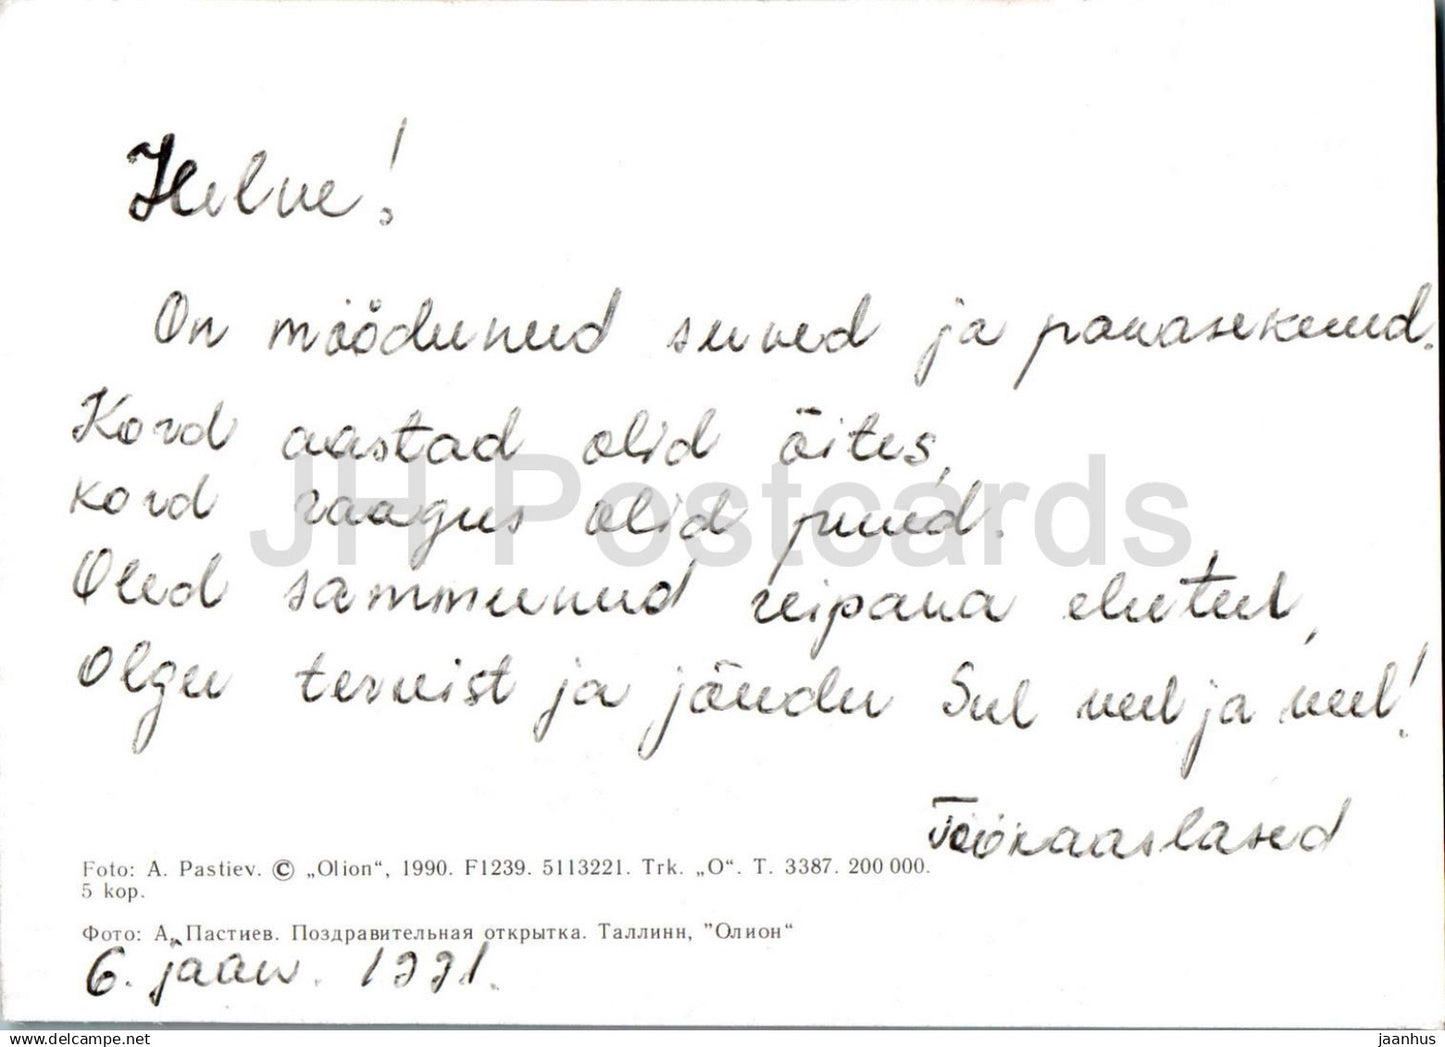 Helve!
On möödunud suved ja pakasekuud.
Kord aastad olid õites,
kord raagus olid puud.
Oled sammunud reipana eluteel,
Olgu tervist ja jõudu Sul veel ja veel!
Töökaaslased
Foto: A. Pastiev. © „Olion“, 1990. F1239. 5113221. Trk. „O“. T. 3387. 200 000.
5 kop.
Фото: А. Пастиев. Поздравительная открытка. Таллинн, "Олион"
6. jaan. 1991.
JH Postcards
www.delcampe.net
jaanhus